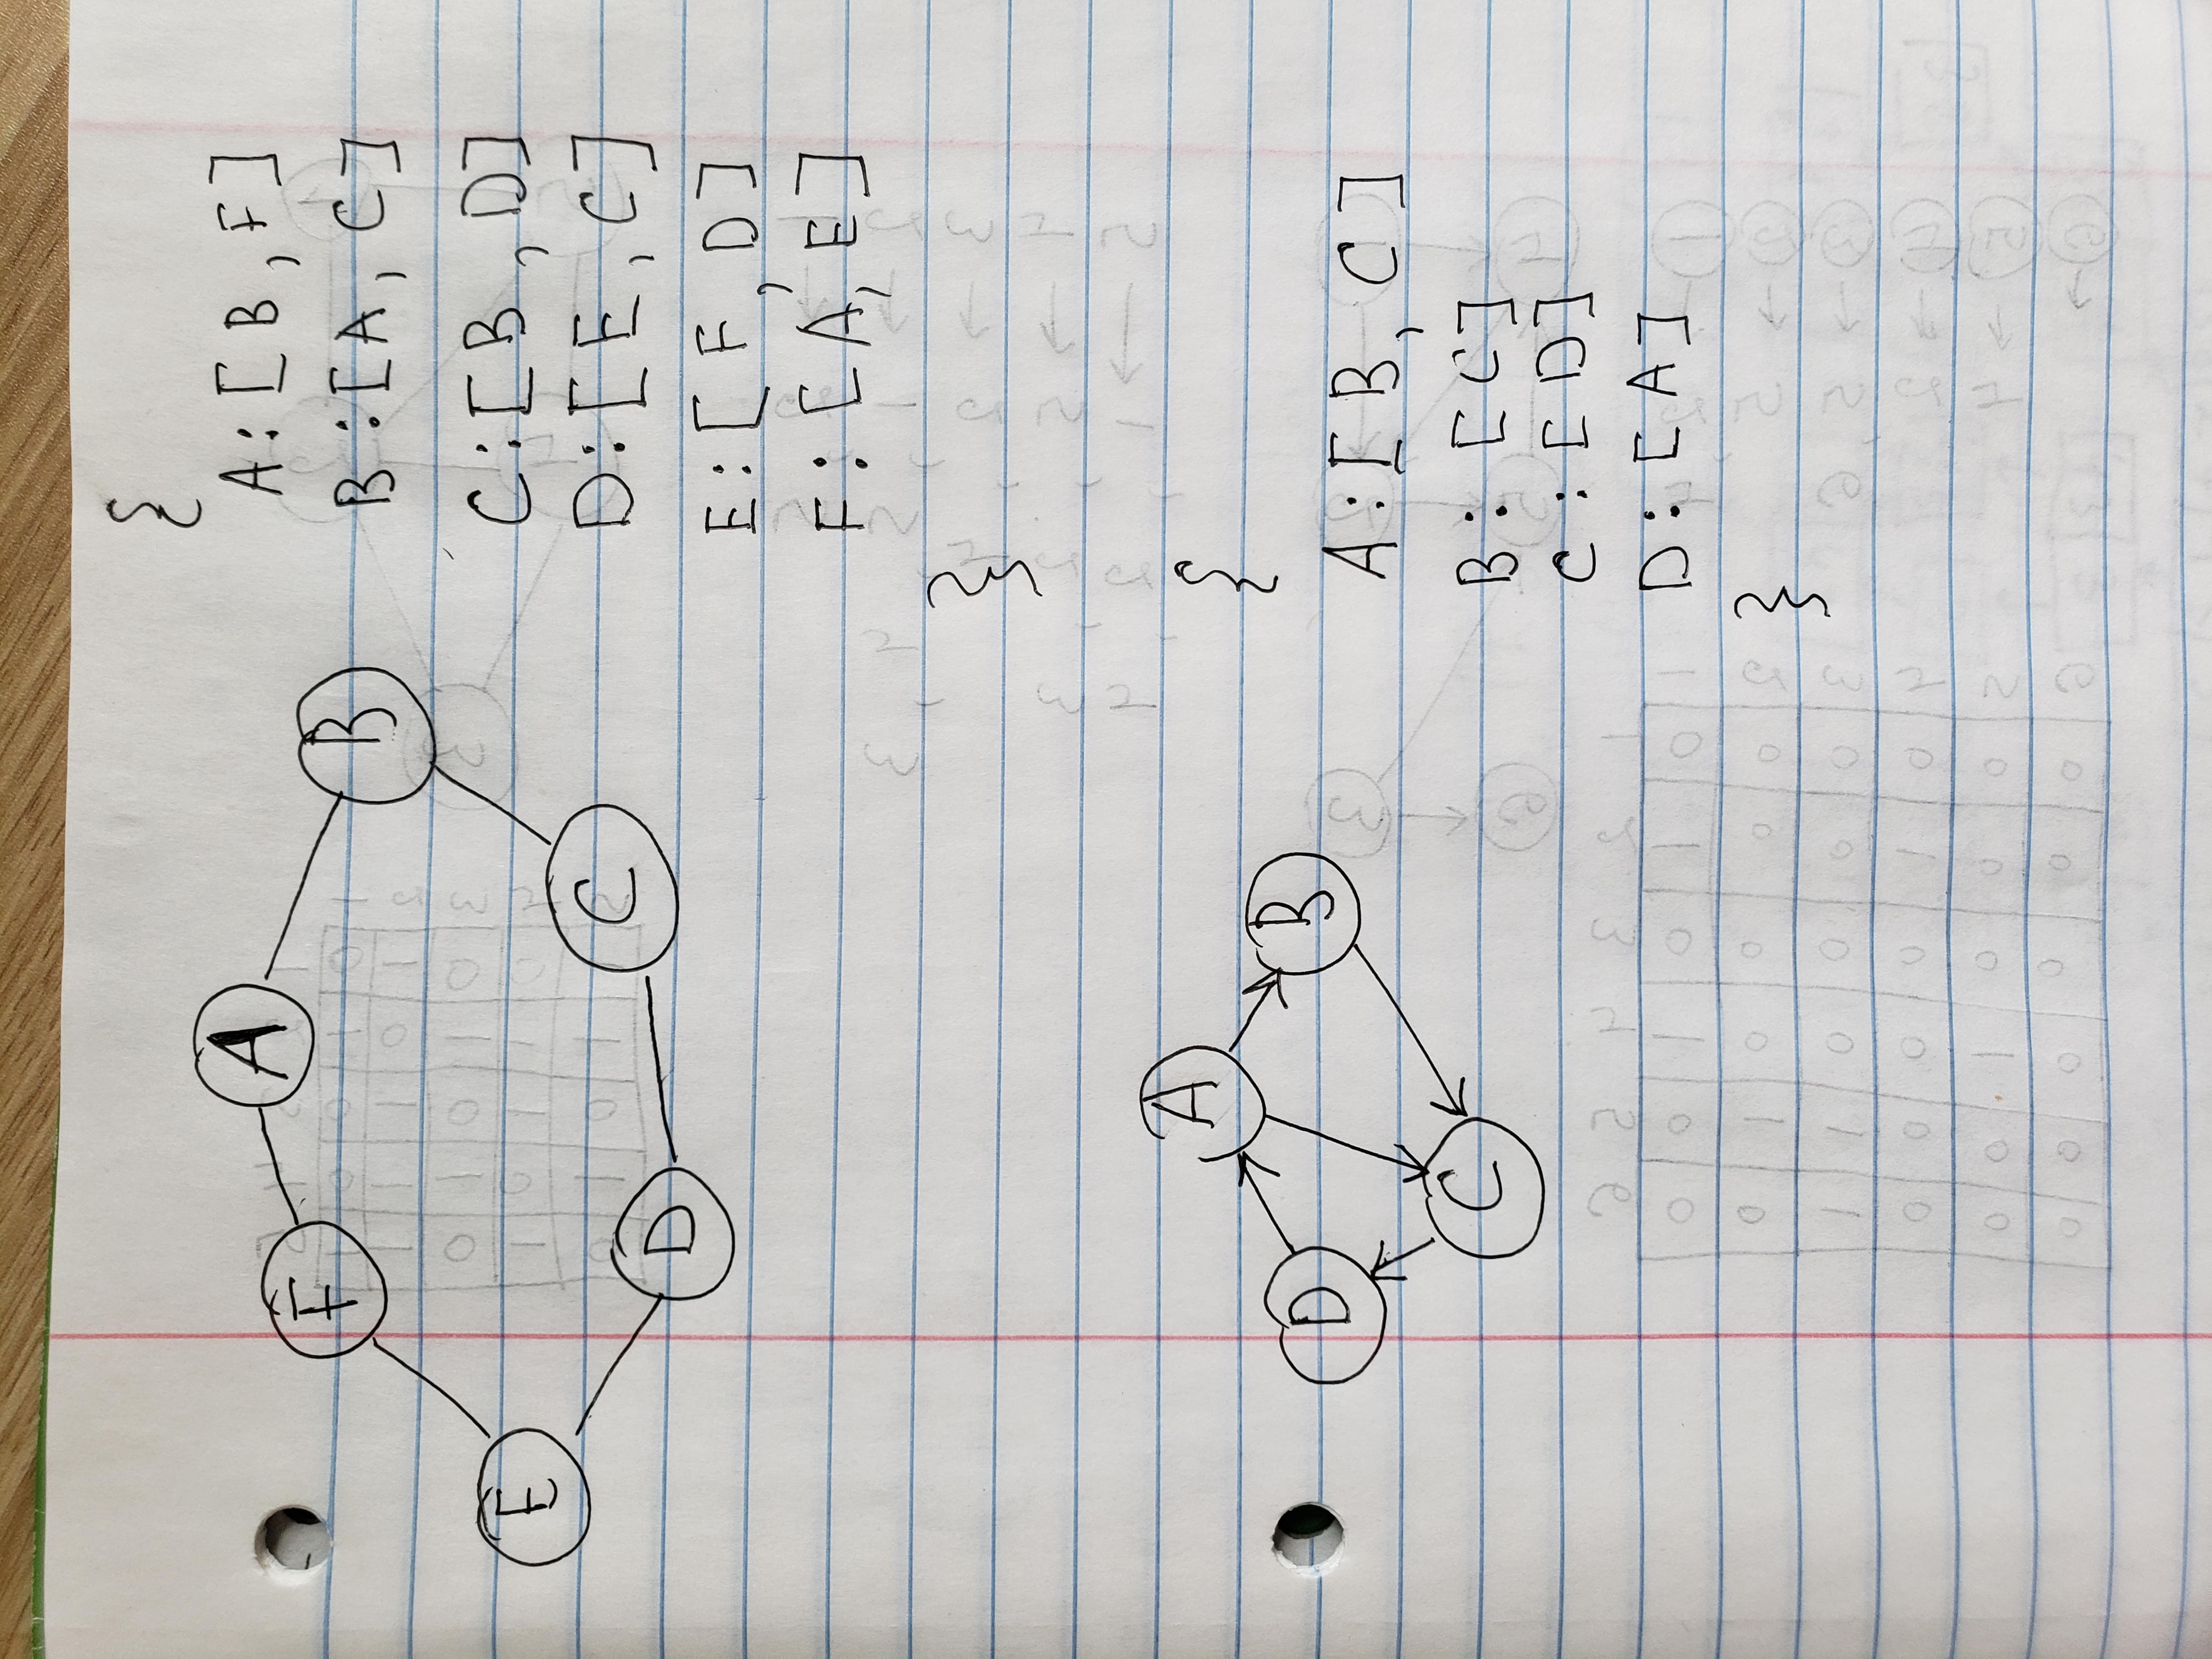 A
F
B
E
C
D
{
A:[B,F]
B:[A,C]
C:[B,D]
D:[E,C]
E:[F,D]
F:[A,E]
}
A
D
B
C
{
A:[B,C]
B:[C]
C:[D]
D:[A]
}